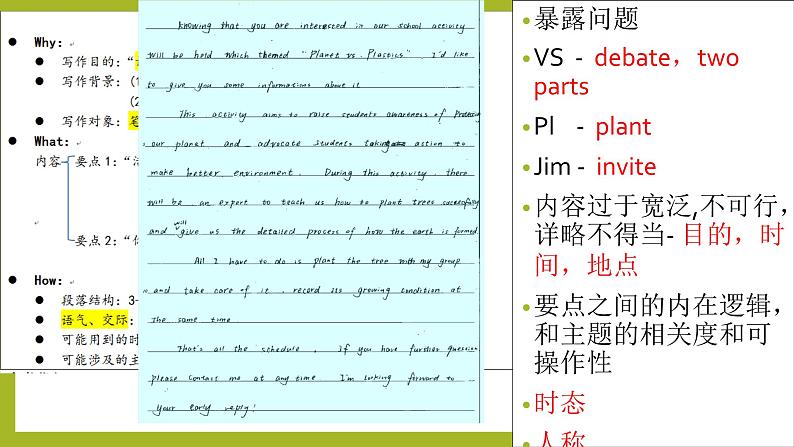 Why:
写作目的:“
写作背景:(1
(2
写作对象:笔
What:
内容 要点1:“活
要点2:“你
How:
段落结构:3-
语气、交际:
可能用到的时
可能涉及的主
Knowing that you are interested in our school activity
will be hold which themed "Planet vs. Plastics", I'd like
to give you some informations about it
This activity aims to raise students awareness of Protecting
our planet and advocate students taking action to
make better environment. During this activity, there
will be an expert to teach us how to plant trees successfully
and will give us the detailed process of how the earth is formed.
All I have to do is plant the tree with my group
and take care of it, record its growing condition at
the same time
That's all the schedule. If you have further question
please contact me at any time I'm looking forward to
your early reply!
暴露问题
VS - debate,two
parts
Pl - plant
Jim - invite
内容过于宽泛,不可行,
详略不得当- 目的,时
间,地点
要点之间的内在逻辑,
和主题的相关度和可
操作性
时态
人称